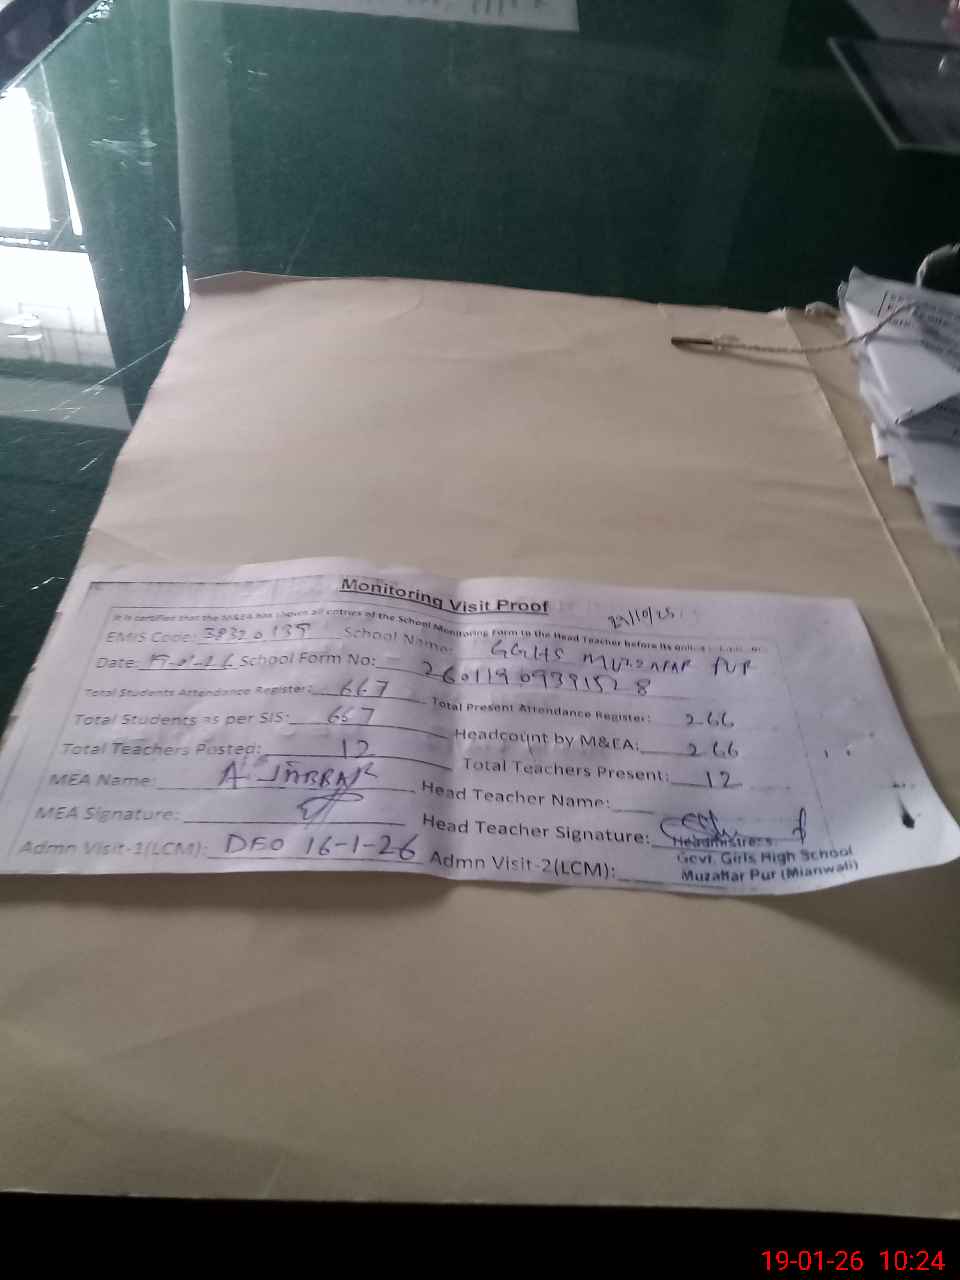 Monitoring Visit Proof
It is certified that the M&EA has shown all entries of the School Monitoring Form to the Head Teacher before its
EMIS Code: 38320139 School Name: GGHS MUZAFAR PUR
Date: 19-01-26 School Form No: 26011909391528
Total Students Attendance Register: 667 Total Present Attendance Register: 266
Total Students as per SIS: 667 Headcount by M&EA: 266
Total Teachers Posted: 12 Total Teachers Present: 12
MEA Name: A JABBAR Head Teacher Name:
MEA Signature: Head Teacher Signature:
Headmistress
Govt. Girls High School
Muzaffar Pur (Mianwali)
Admn Visit-1(LCM): DEO 16-1-26 Admn Visit-2(LCM):
19-01-26 10:24